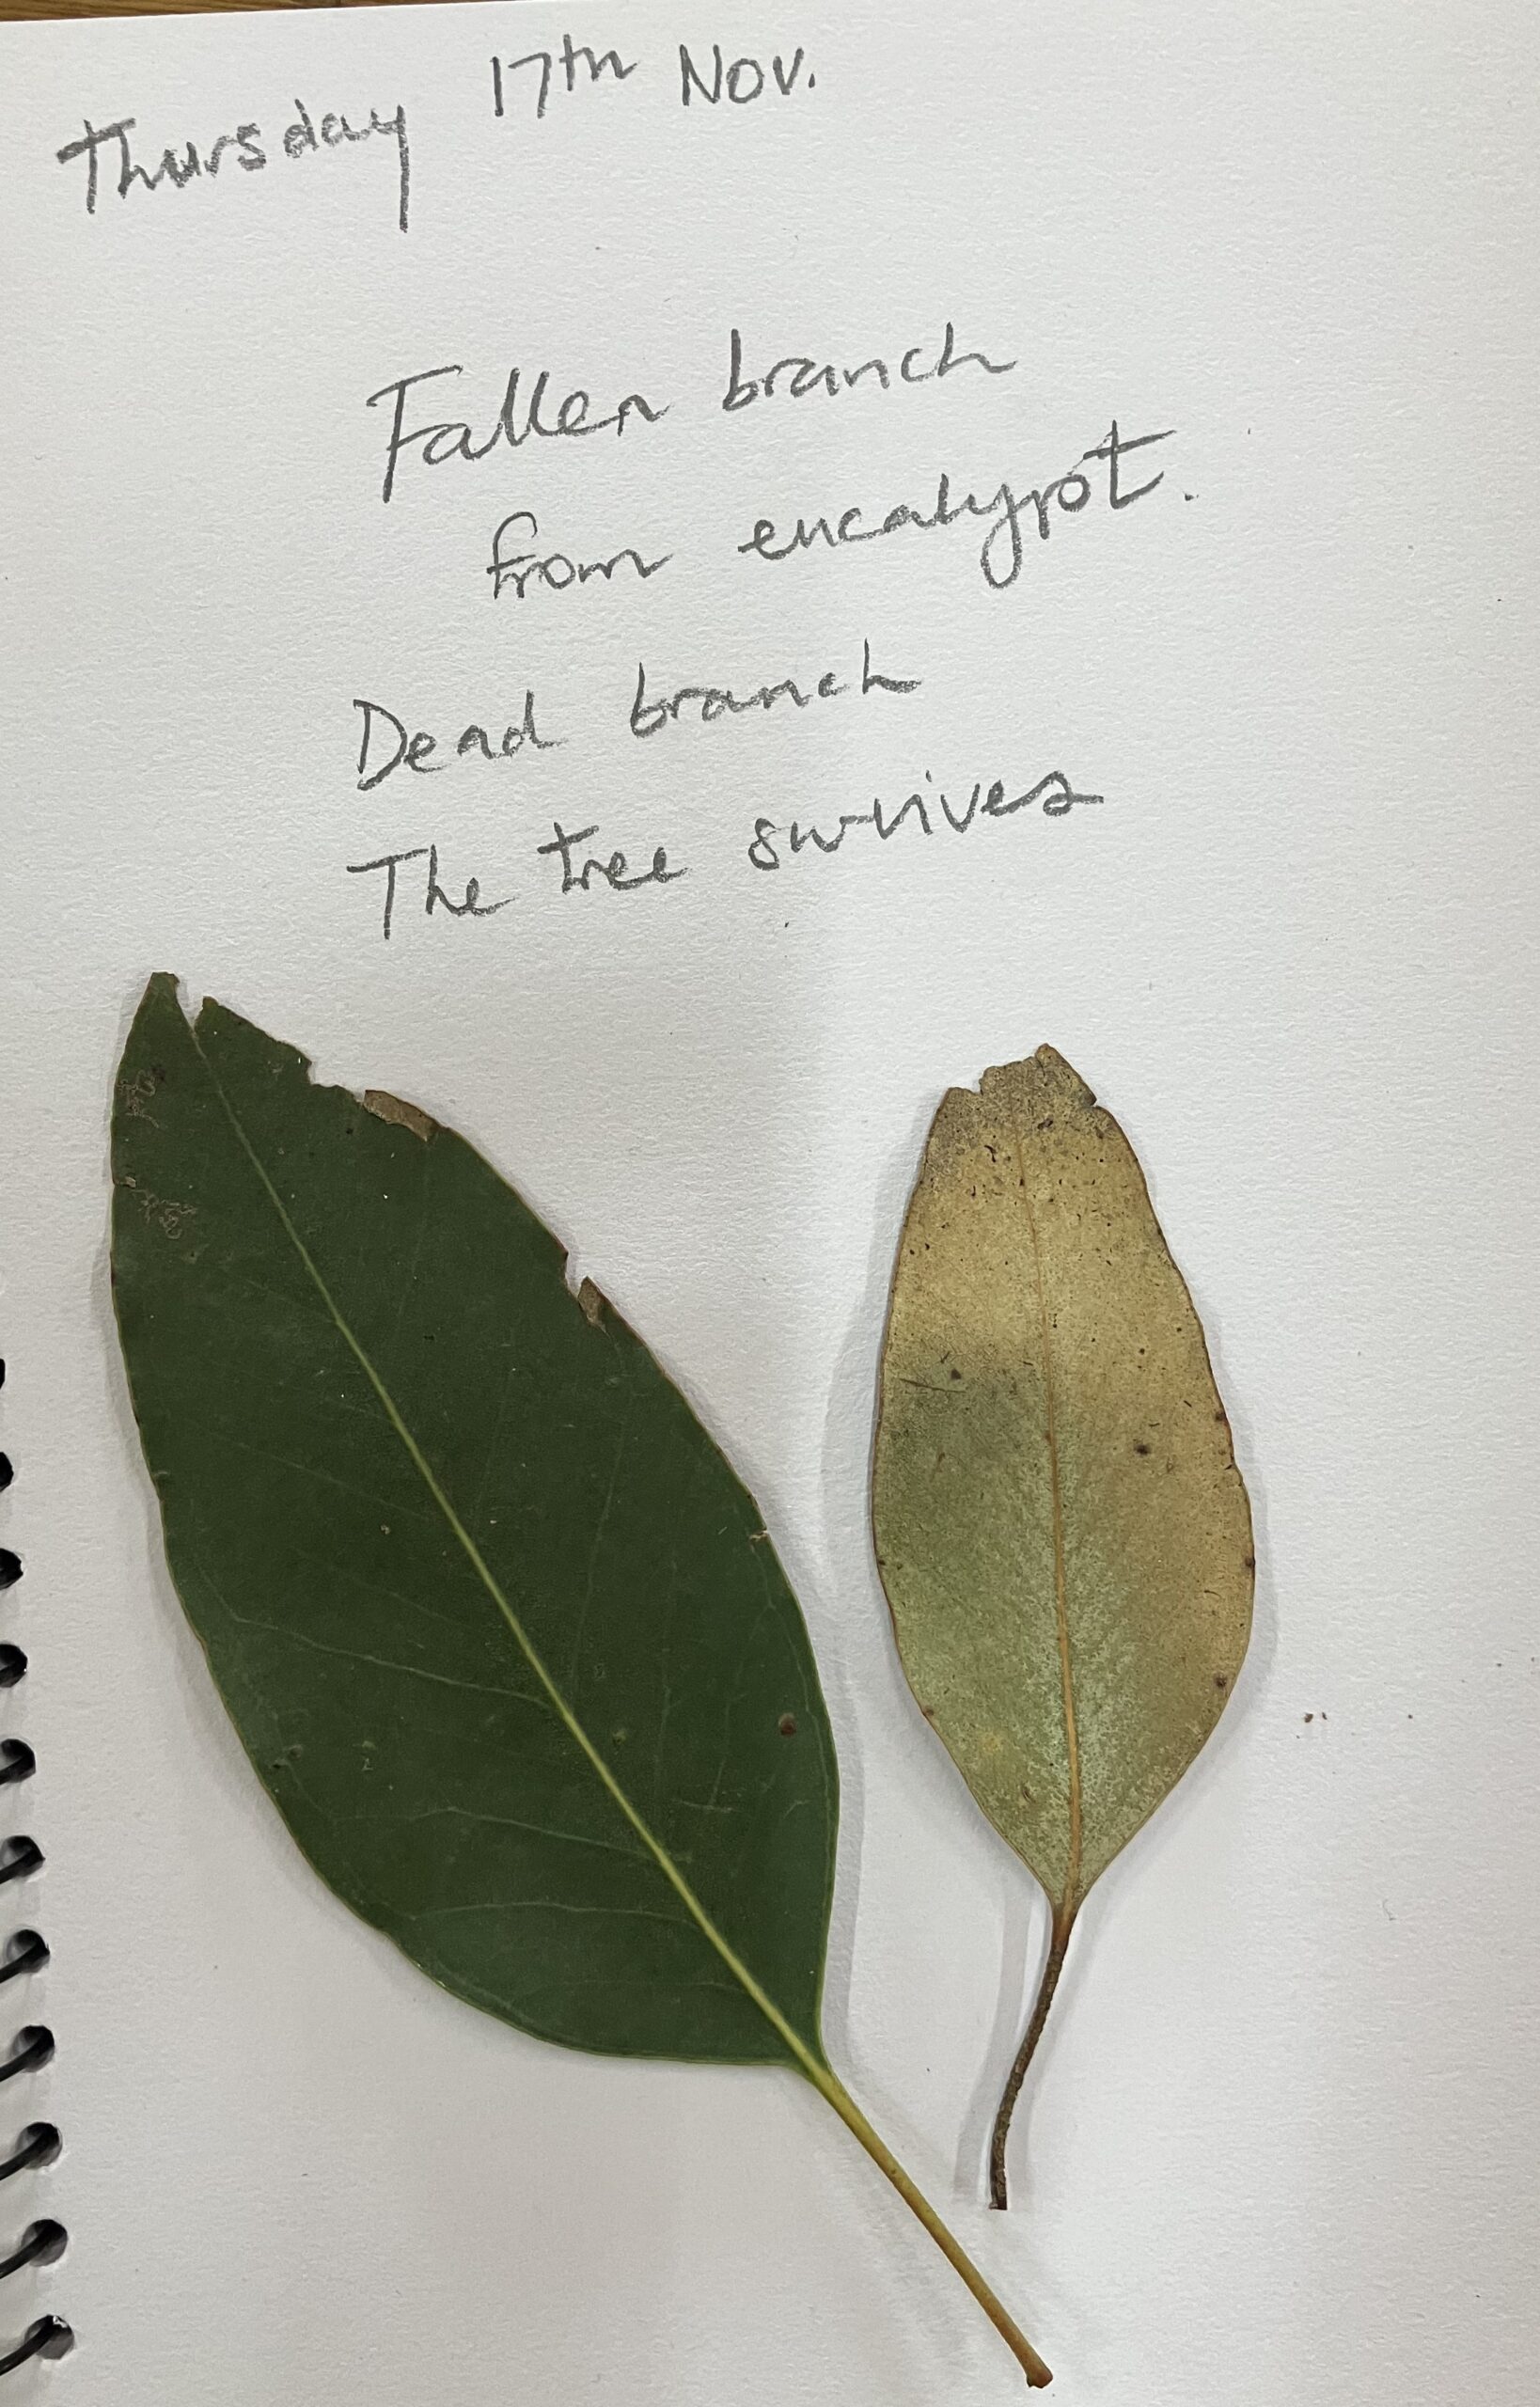 Thursday 17th Nov.
Fallen branch
from eucalypt.
Dead branch
The tree survives